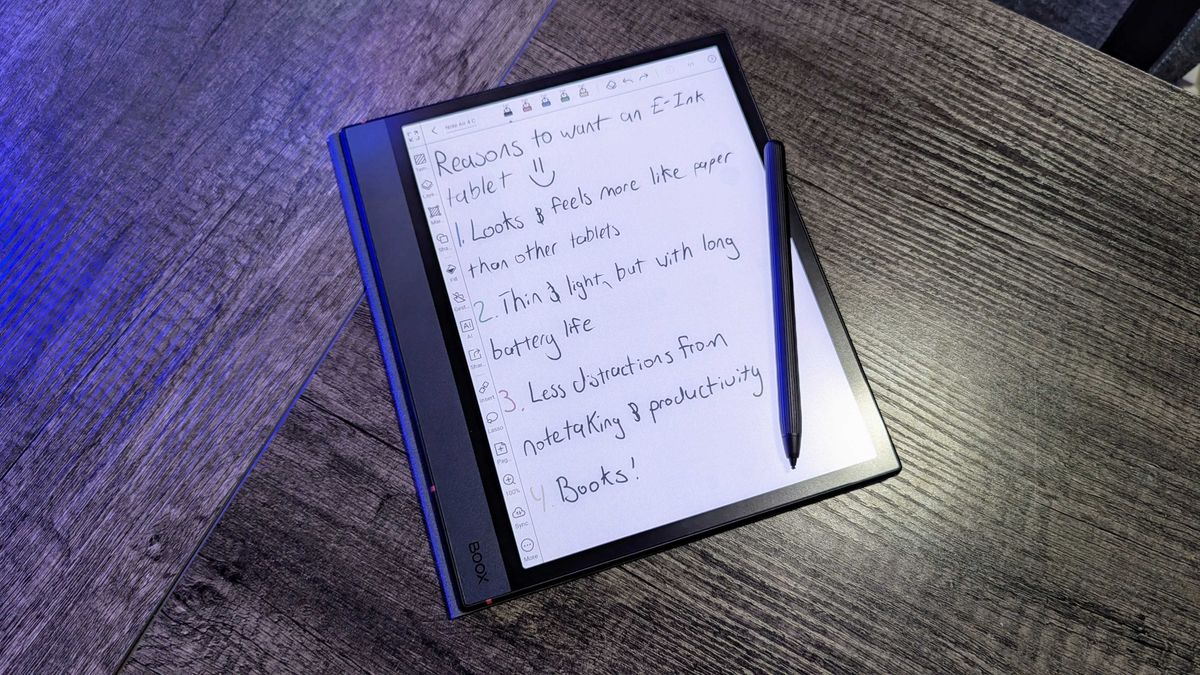 Note Air 4 C
1/1
Reasons to want an E-Ink
tablet
1. Looks & feels more like paper
than other tablets
2. Thin & light, but with long
battery life
3. Less distractions from
notetaking & productivity
4. Books!
Fill
AI
AI
Insert
Lasso
Pag...
100%
Sync
More
BOOX